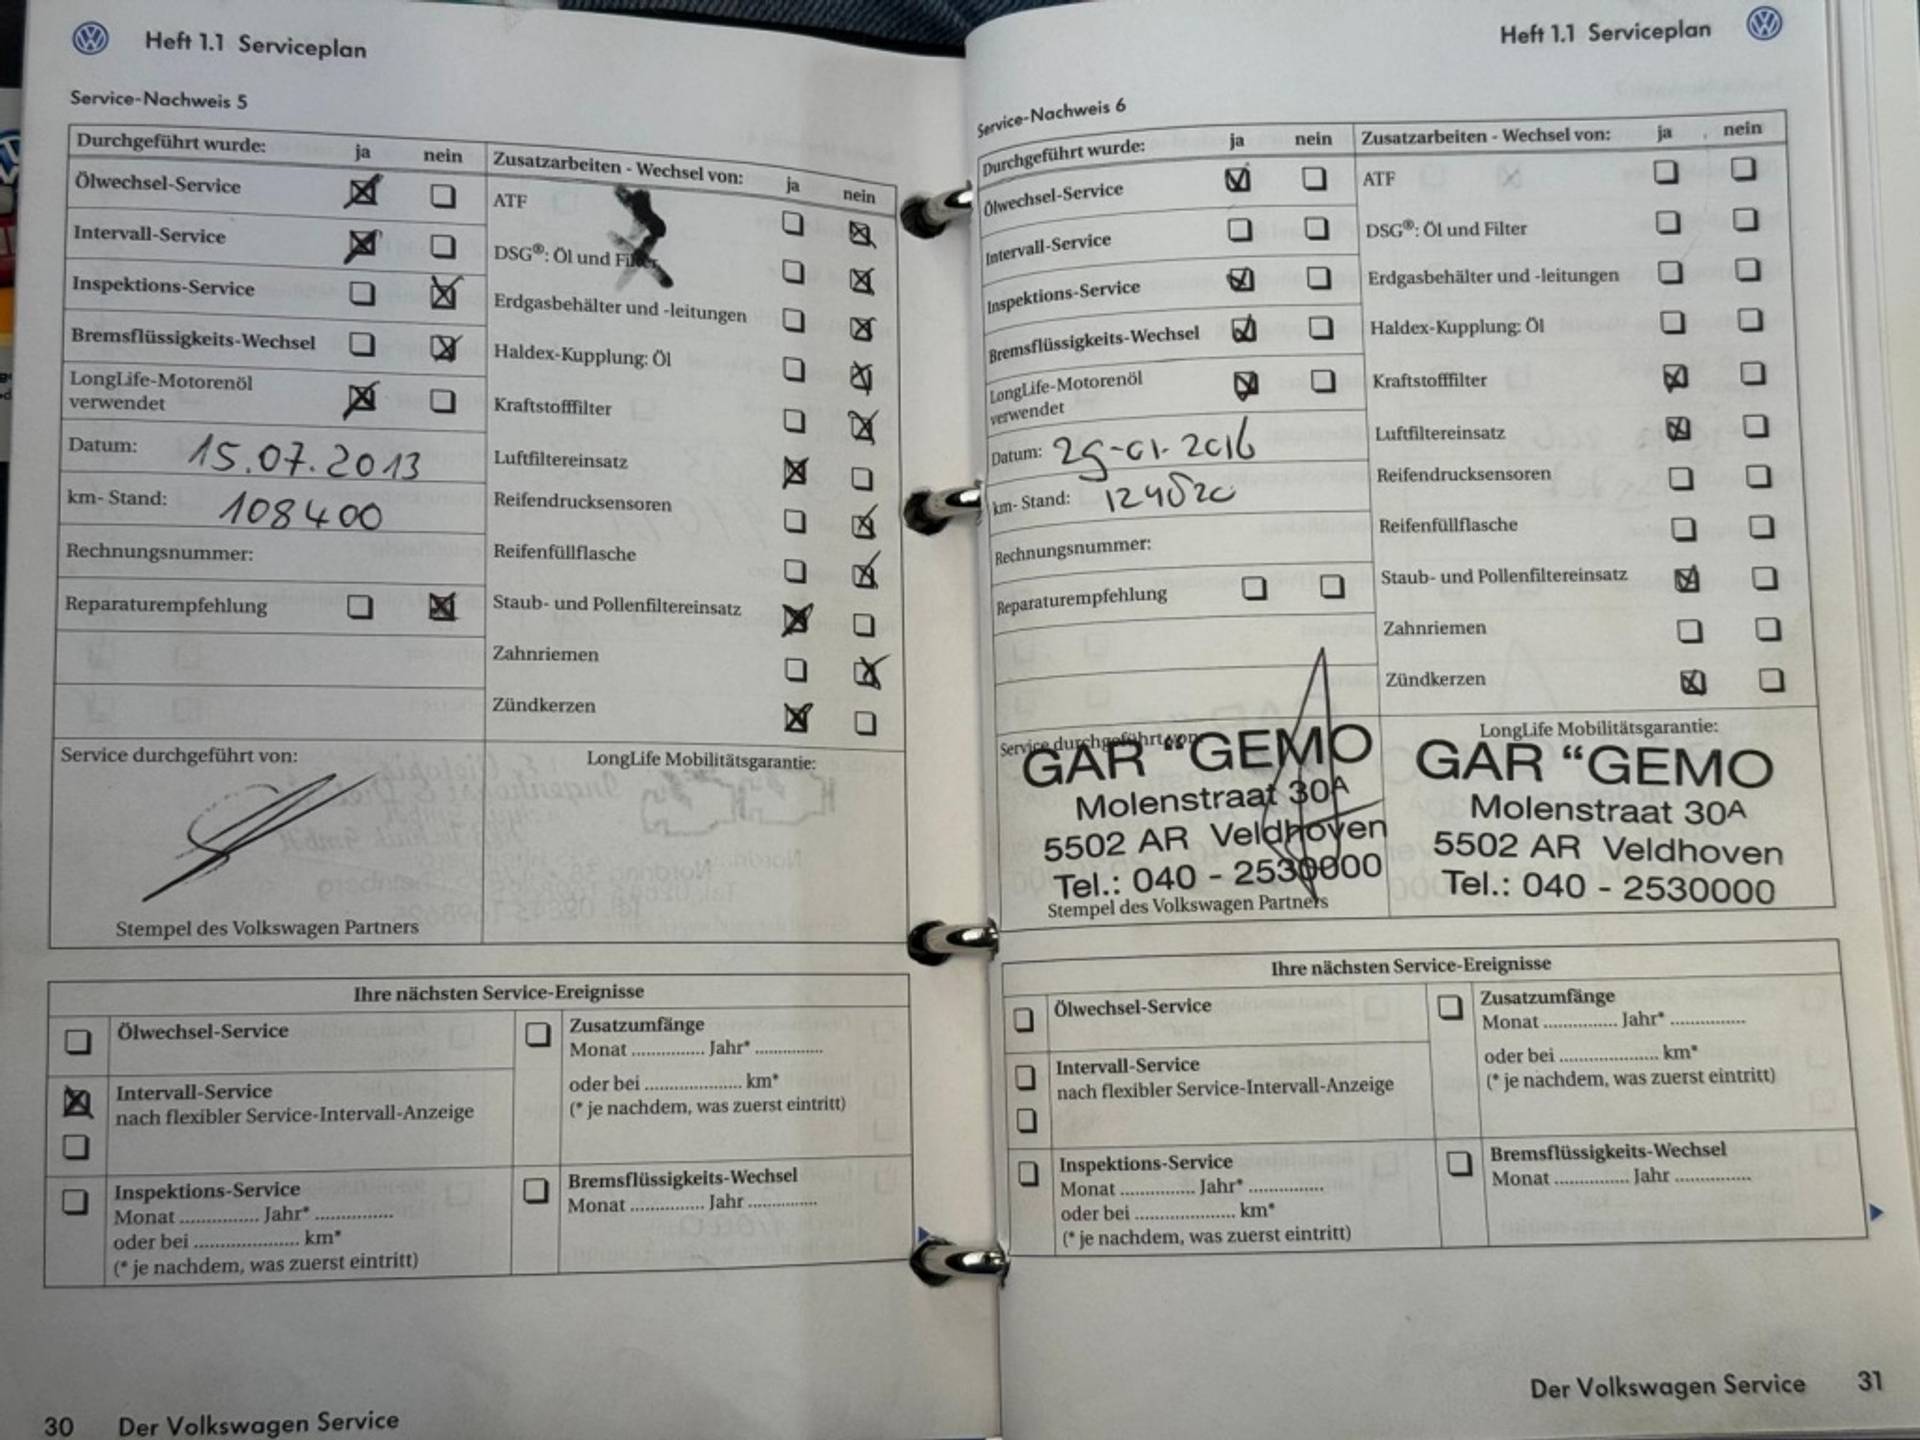 Heft 1.1 Serviceplan
Service-Nachweis 5
Durchgeführt wurde: ja nein
Ölwechsel-Service
Intervall-Service
Inspektions-Service
Bremsflüssigkeits-Wechsel
LongLife-Motorenöl
verwendet
Datum: 15.07.2013
km- Stand: 108400
Rechnungsnummer:
Reparaturempfehlung
Zusatzarbeiten - Wechsel von: ja nein
ATF
DSG®: Öl und Filter
Erdgasbehälter und -leitungen
Haldex-Kupplung: Öl
Kraftstofffilter
Luftfiltereinsatz
Reifendrucksensoren
Reifenfüllflasche
Staub- und Pollenfiltereinsatz
Zahnriemen
Zündkerzen
Service durchgeführt von:
Stempel des Volkswagen Partners
LongLife Mobilitätsgarantie:
Ihre nächsten Service-Ereignisse
Ölwechsel-Service
Intervall-Service
nach flexibler Service-Intervall-Anzeige
Inspektions-Service
Monat ............... Jahr* ...............
oder bei .................... km*
(* je nachdem, was zuerst eintritt)
Zusatzumfänge
Monat ............... Jahr* ...............
oder bei .................... km*
(* je nachdem, was zuerst eintritt)
Bremsflüssigkeits-Wechsel
Monat ............... Jahr ...............
30 Der Volkswagen Service
Heft 1.1 Serviceplan
Service-Nachweis 6
Durchgeführt wurde: ja nein
Ölwechsel-Service
Intervall-Service
Inspektions-Service
Bremsflüssigkeits-Wechsel
LongLife-Motorenöl
verwendet
Datum: 29-01-2016
km- Stand:
Rechnungsnummer:
Reparaturempfehlung
Zusatzarbeiten - Wechsel von: ja nein
ATF
DSG®: Öl und Filter
Erdgasbehälter und -leitungen
Haldex-Kupplung: Öl
Kraftstofffilter
Luftfiltereinsatz
Reifendrucksensoren
Reifenfüllflasche
Staub- und Pollenfiltereinsatz
Zahnriemen
Zündkerzen
Service durchgeführt von:
GAR “GEMO
Molenstraat 30A
5502 AR Veldhoven
Tel.: 040 - 2530000
Stempel des Volkswagen Partners
LongLife Mobilitätsgarantie:
GAR “GEMO
Molenstraat 30A
5502 AR Veldhoven
Tel.: 040 - 2530000
Ihre nächsten Service-Ereignisse
Ölwechsel-Service
Intervall-Service
nach flexibler Service-Intervall-Anzeige
Inspektions-Service
Monat ............... Jahr* ...............
oder bei .................... km*
(* je nachdem, was zuerst eintritt)
Zusatzumfänge
Monat ............... Jahr* ...............
oder bei .................... km*
(* je nachdem, was zuerst eintritt)
Bremsflüssigkeits-Wechsel
Monat ............... Jahr ...............
Der Volkswagen Service 31